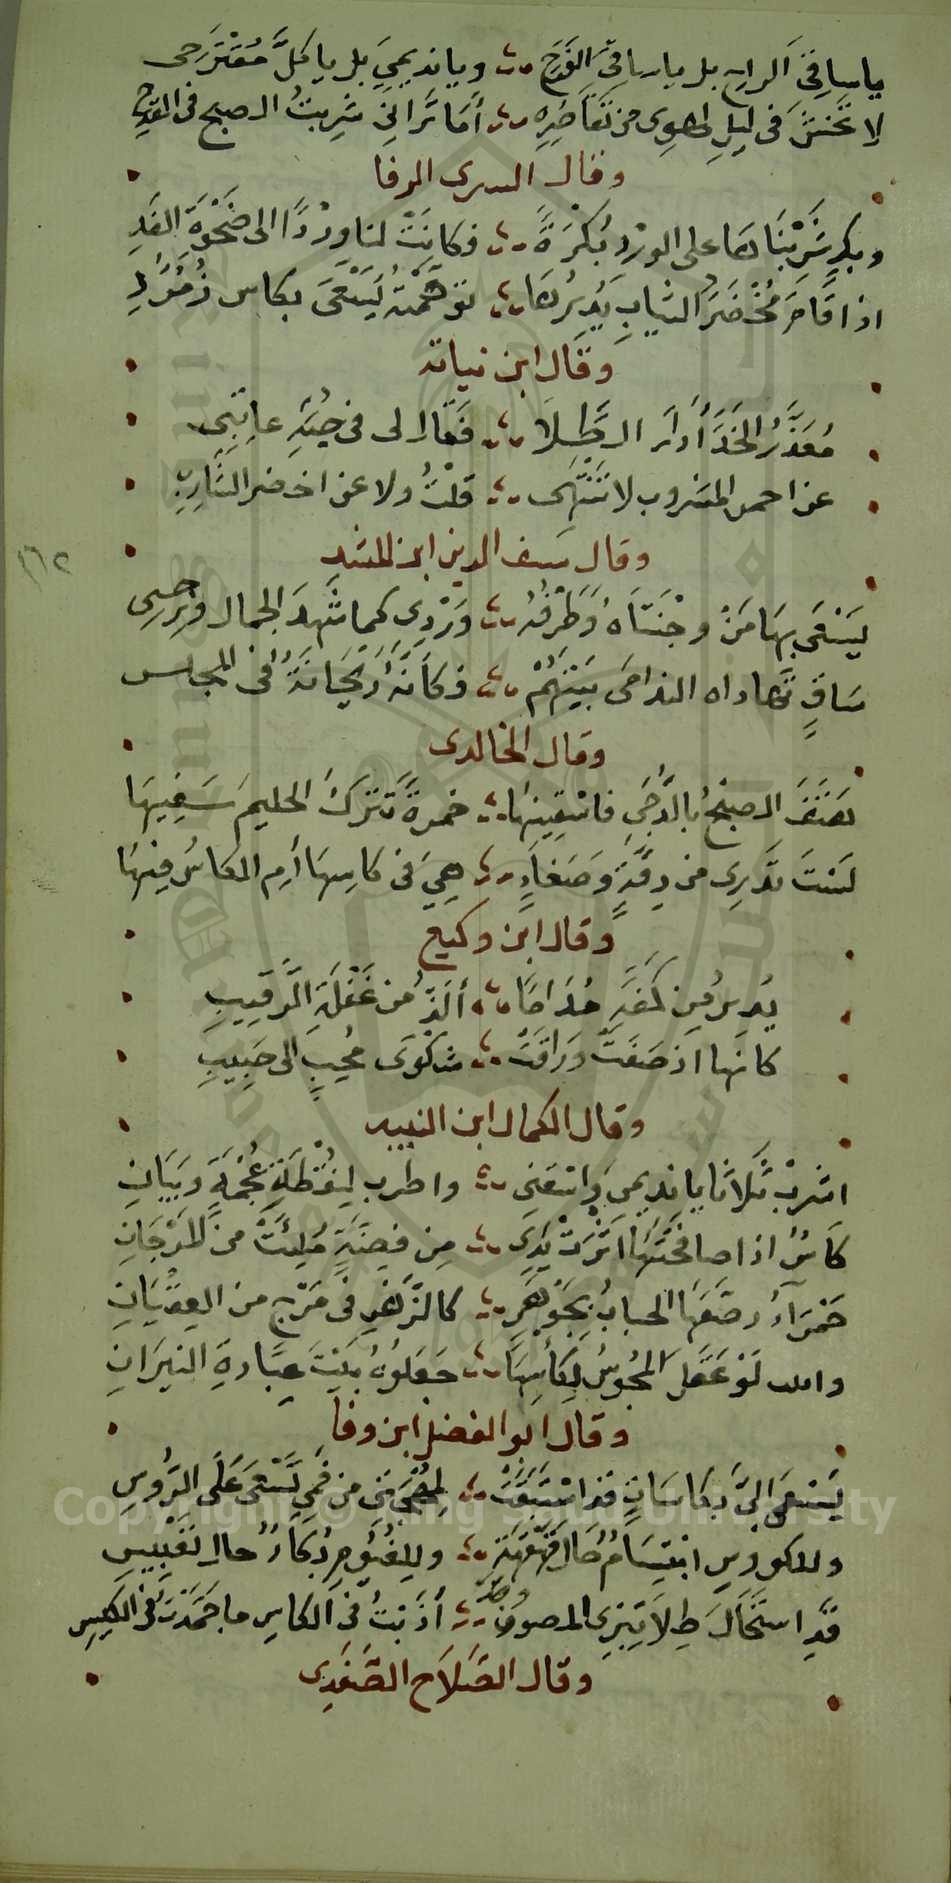 يا ساقي الراح بل يا ساقي الفرح ؞ ويا نديمي بل يا كل مقترحى
لا تخش فى ليل لهوى من تقاصره ؞ أما ترانى شربت الصبح فى القدح
وقال السرى الرفا
وبكر شربناها على الورد بكرة ؞ فكانت لنا وردا الى ضحوة الغد
اذا قام مخضر الثياب يديرها ؞ توهمته يسعى بكاس زمرد
وقال ابن نباته
معذر الخد أدار الطلا ؞ فقال لى فى حبه عاتبى
عن احمر المشروب لا تنتهى ؞ قلت ولا عن اخضر الشارب
وقال سيف الدين ابن المشد
١٦٢
يسعى بها من وجنتاه وطرفه ؞ وردى كما شهد الجمال ونرجسى
ساق تهاداه الندامى بينهم ؞ فكأنه ريحانة فى المجلس
وقال الخالدى
هتف الصبح بالدجى فاسقنيها ؞ خمرة تترك الحليم سفيها
لست تدرى من رقة وصفاء ؞ هى فى كاسها أم الكاس فيها
وقال ابن وكيع
يدير من كفه مداما ؞ ألذ من غفلة الرقيب
كانها اذ صفت وراقت ؞ شكوى محب الى حبيب
وقال الكمال ابن النبيه
اشرب ثلاثا يا نديمى واسقنى ؞ واطرب لنقطة عجمة وبيان
كاس اذا صافحتها اثرت يدى ؞ من فضة ملئت من المرجان
حمرآء رصعها الحباب بجوهر ؞ كالزهر فى مرج من العقيان
والله لو عقل المجوس لكأسها ؞ جعلوه بيت عبادة النيران
وقال ابو الفضل ابن وفا
يسعى الى بكاسات قد استبقت ؞ لمهجتى من فمى تسعى على الروس
وللكووس ابتسام حال قهقهة ؞ وللغيوم بكاء حال تعبيس
قد استحال طلا تبرى المصون وقد ؞ أذبت فى الكاس ما جمدت فى الكيس
وقال الصلاح الصفدى
Copyright © King Saud University